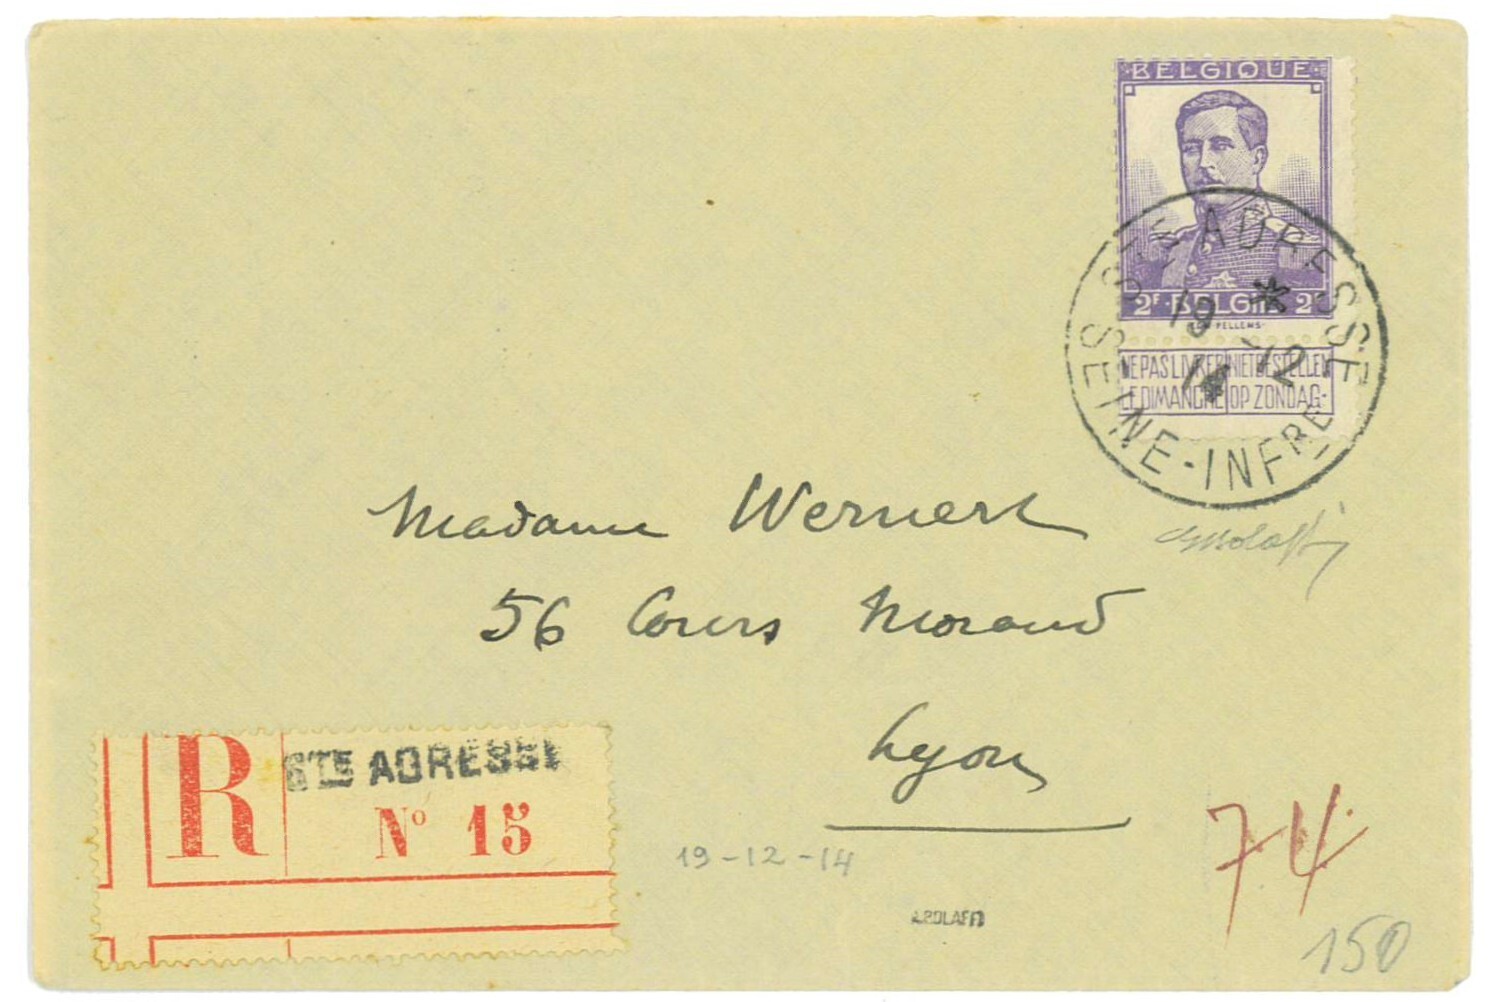 BELGIQUE
2F BELGIË 2F
NE PAS LIVRER NIET BESTELLEN
LE DIMANCHE OP ZONDAG-
STE ADRESSE
19 * -12
14
SEINE-INFRE
Madame Wernert
56 Cours Morand
Lyon
R STE ADRESSE
No 15
19-12-14
A.BOLAFFI
74
150